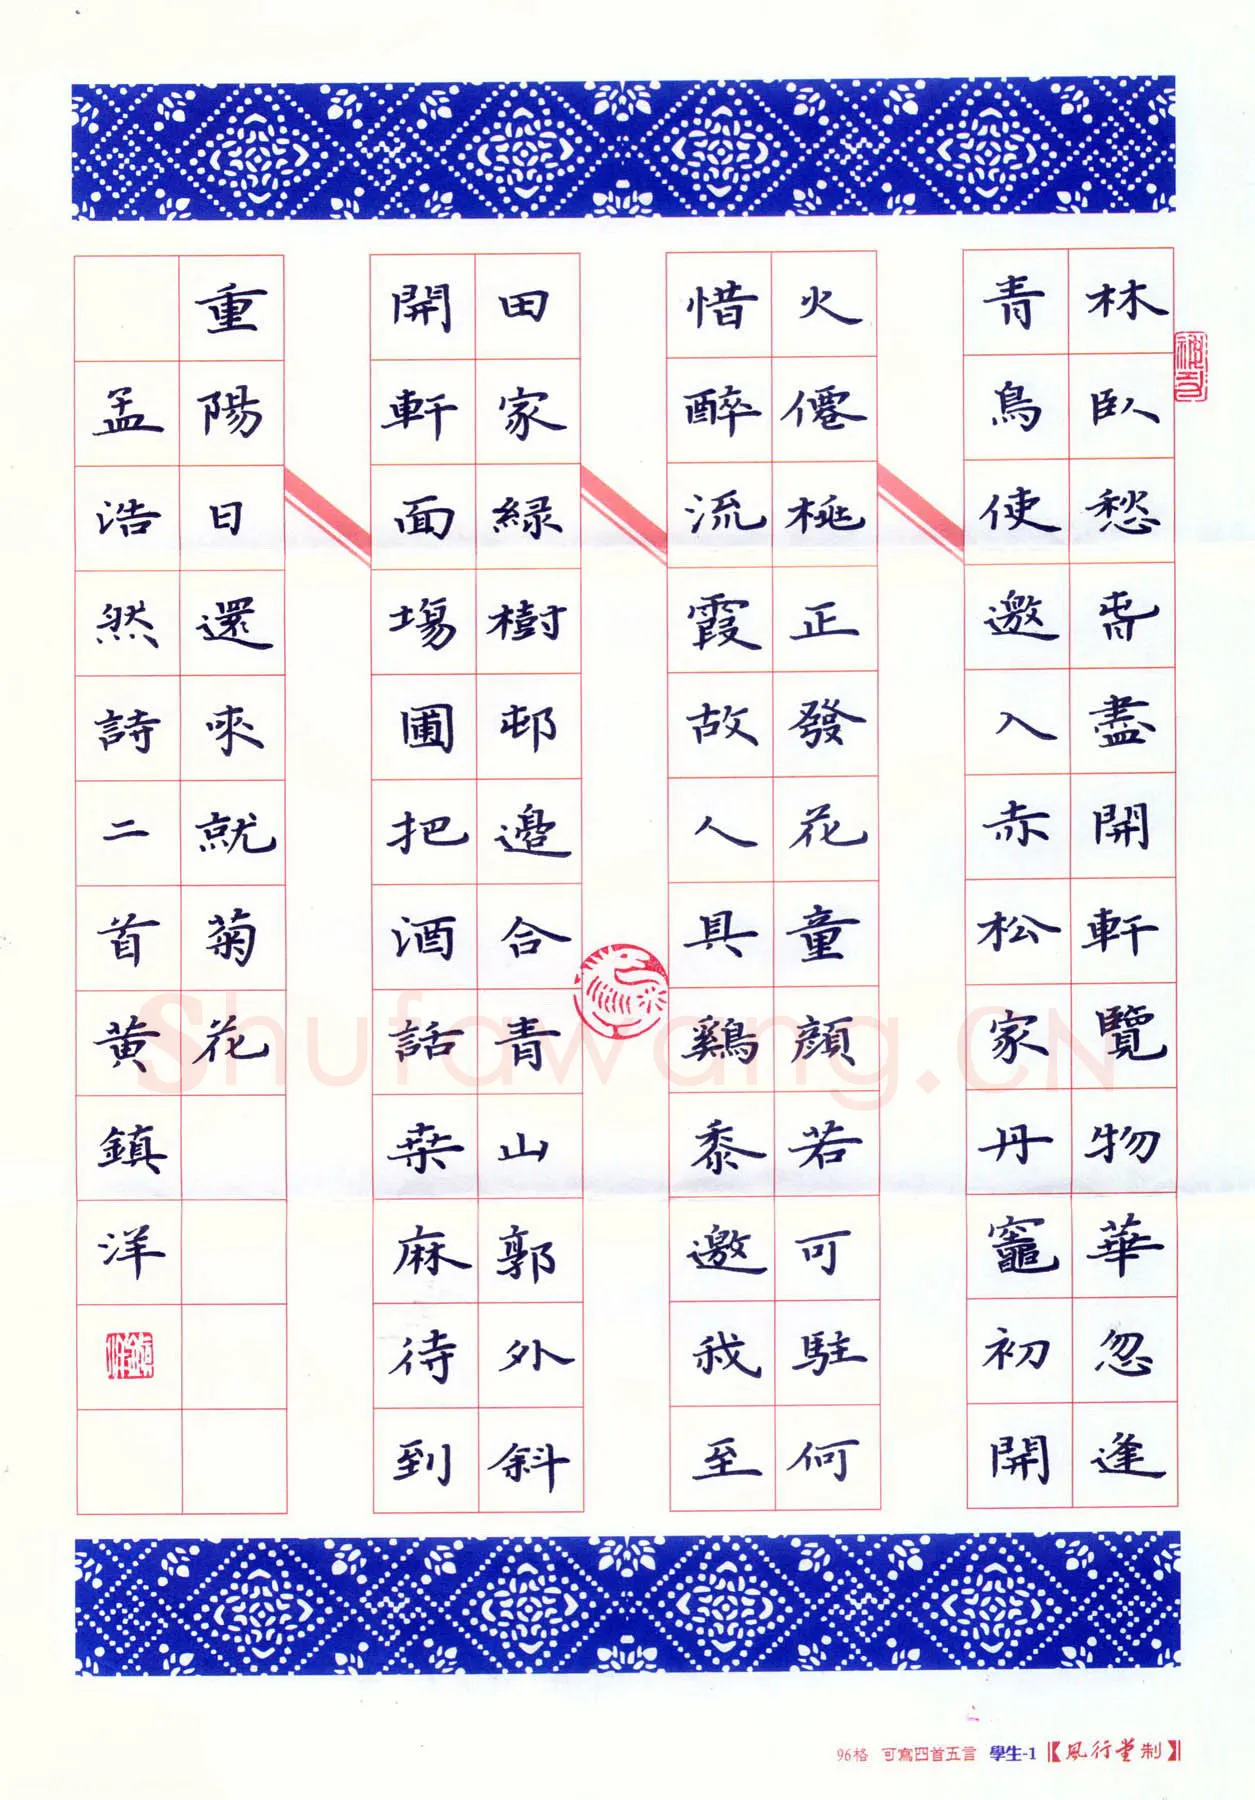 林臥愁春盡開軒覽物華忽逢
青鳥使邀入赤松家丹竈初開
火僊桃正發花童顏若可駐何
惜醉流霞故人具鷄黍邀我至
田家綠樹邨邊合青山郭外斜
開軒面場圃把酒話桑麻待到
重陽日還來就菊花
孟浩然詩二首黄鎮洋
Shufawang.CN
96格 可寫四首五言 學生-1【風行堂制】